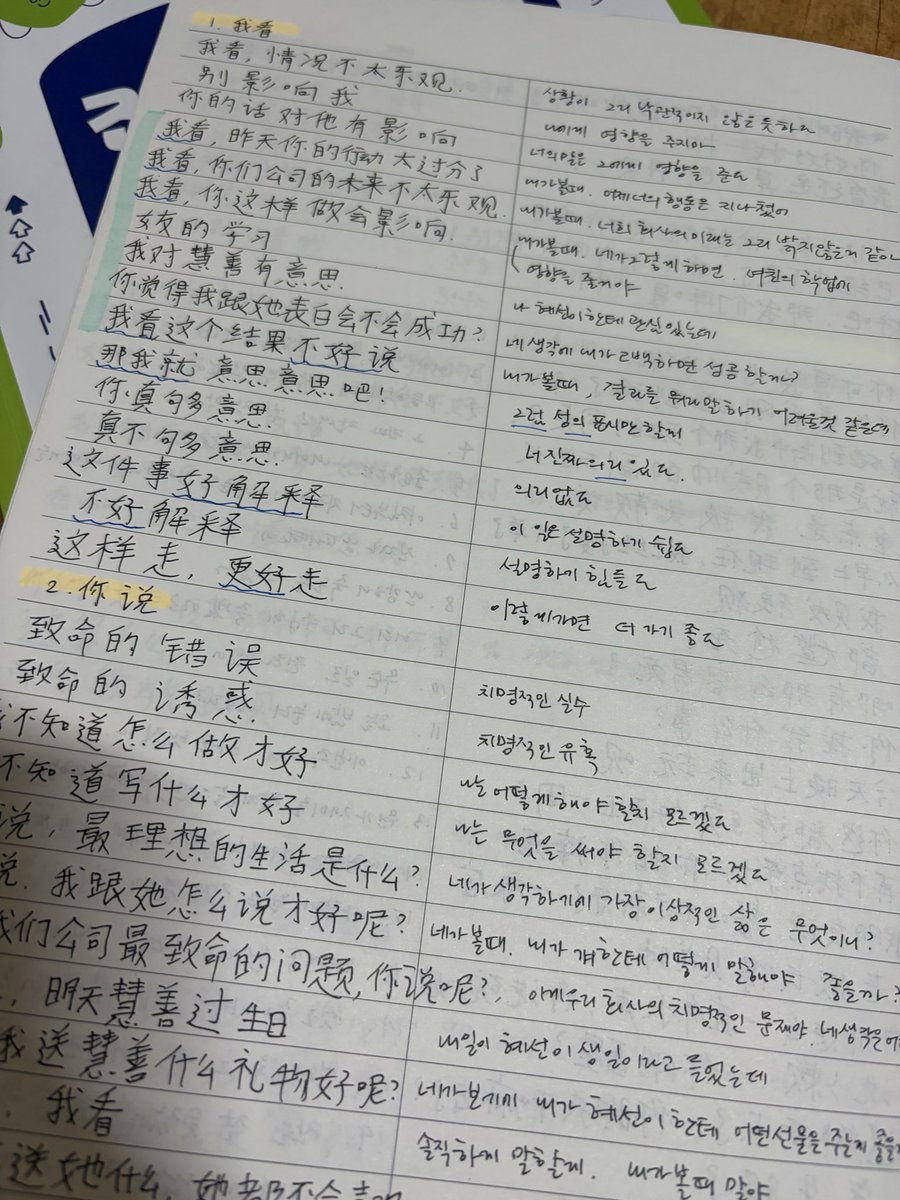 1. 我看
我看, 情况不太乐观.
别影响我
你的话对他有影响
我看, 昨天你的行动太过分了
我看, 你们公司的未来不太乐观.
我看, 你这样做会影响.
女友的学习
我对慧善有意思.
你觉得我跟她表白会不会成功?
我看这个结果不好说
那我就意思意思吧!
你真句多意思.
真不句多意思.
这文件事好解释
不好解释
这样走, 更好走
2. 你说
致命的错误
致命的诱惑.
不知道怎么做才好
不知道写什么才好
说, 最理想的生活是什么?
说. 我跟她怎么说才好呢?
我们公司最致命的问题, 你说呢?,
明天慧善过生日
我送慧善什么礼物好呢?
我看
送她什么, 她都不会
상황이 그리 낙관적이지 않은 듯하다
나에게 영향을 주지마
너의 말은 그에게 영향을 준다
내가볼때. 어제 너의 행동은 지나쳤어
내가볼때. 너희 회사의 미래는 그리 밝지않는거 같아
내가볼때. 네가 그렇게 하면. 여친의 학업에
영향을 줄거야
나 혜선이한테 관심있는데
네 생각에 내가 고백하면 성공할까?
내가볼때, 결과를 뭐라말하기 어려울것 같은데
그럼 성의 표시만 할게
너 진짜 의리 있다.
의리없다
이 일은 설명하기 쉽다
설명하기 힘들다
이렇게가면 더 가기 좋다
치명적인 실수
치명적인 유혹
나는 어떻게 해야 할지 모르겠다
나는 무엇을 써야 할지 모르겠다
네가 생각하기에 가장 이상적인 삶은 무엇이니?
네가 볼때. 내가 걔한테 어떻게 말해야 좋을까?
우리 회사의 치명적인 문제야. 네생각은
내일이 혜선이 생일이라고 들었는데
네가 보기에 내가 혜선이한테 어떤선물을 주는게 좋을
솔직하게 말할게. 내가볼때 말야